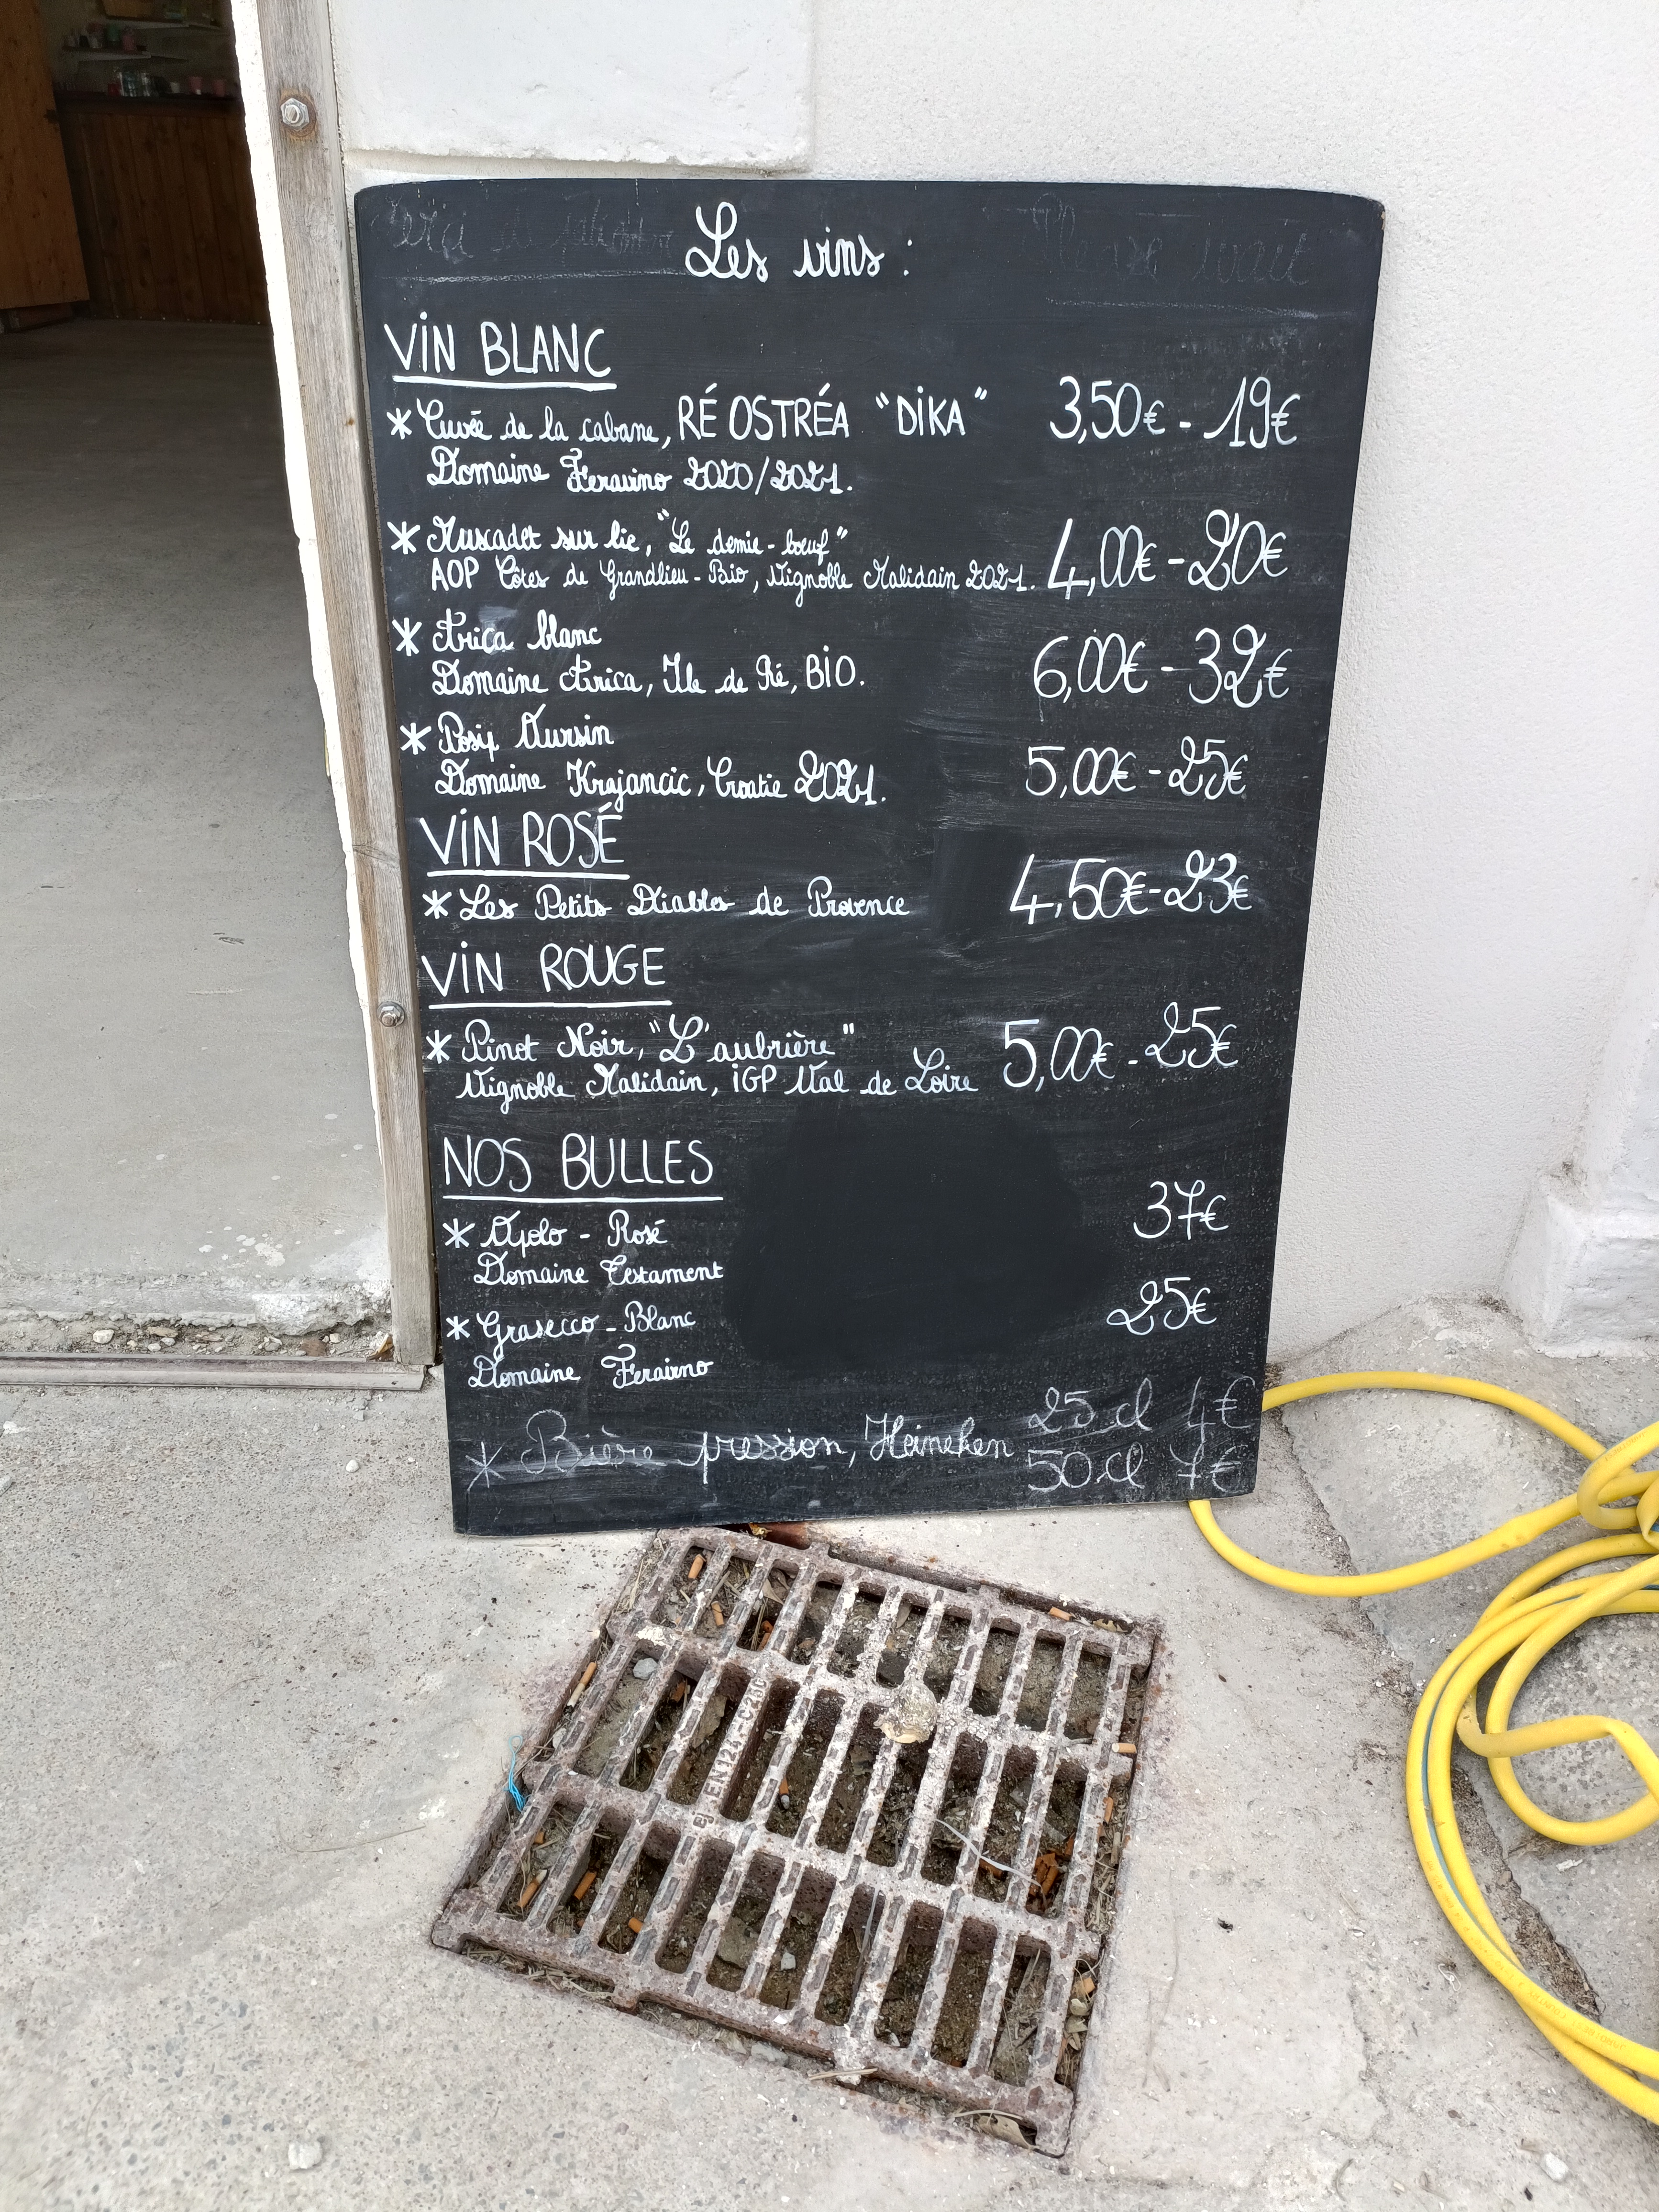 Les vins :
VIN BLANC
* Cuvée de la cabane, RÉ OSTRÉA "DIKA" 3,50€ - 19€
Domaine Feravino 2020/2021.
* Muscadet sur lie, "Le demie-boeuf"
AOP Côtes de Grandlieu - Bio, Vignoble Malidain 2021. 4,00€ - 20€
* Arica blanc
Domaine Arica, Ile de Ré, BIO. 6,00€ - 32€
* Posip Aursin
Domaine Krajancic, Croatie 2021. 5,00€ - 25€
VIN ROSÉ
* Les Petits Diables de Provence 4,50€ - 23€
VIN ROUGE
* Pinot Noir, "L'aubrière" 5,00€ - 25€
Vignoble Malidain, IGP Val de Loire
NOS BULLES
37€
* Apolo - Rosé
Domaine Testament
* Grasecco - Blanc 25€
Domaine Feravino
* Bière pression, Heineken 25 cl 4€
50 cl 7€
EN124-C250